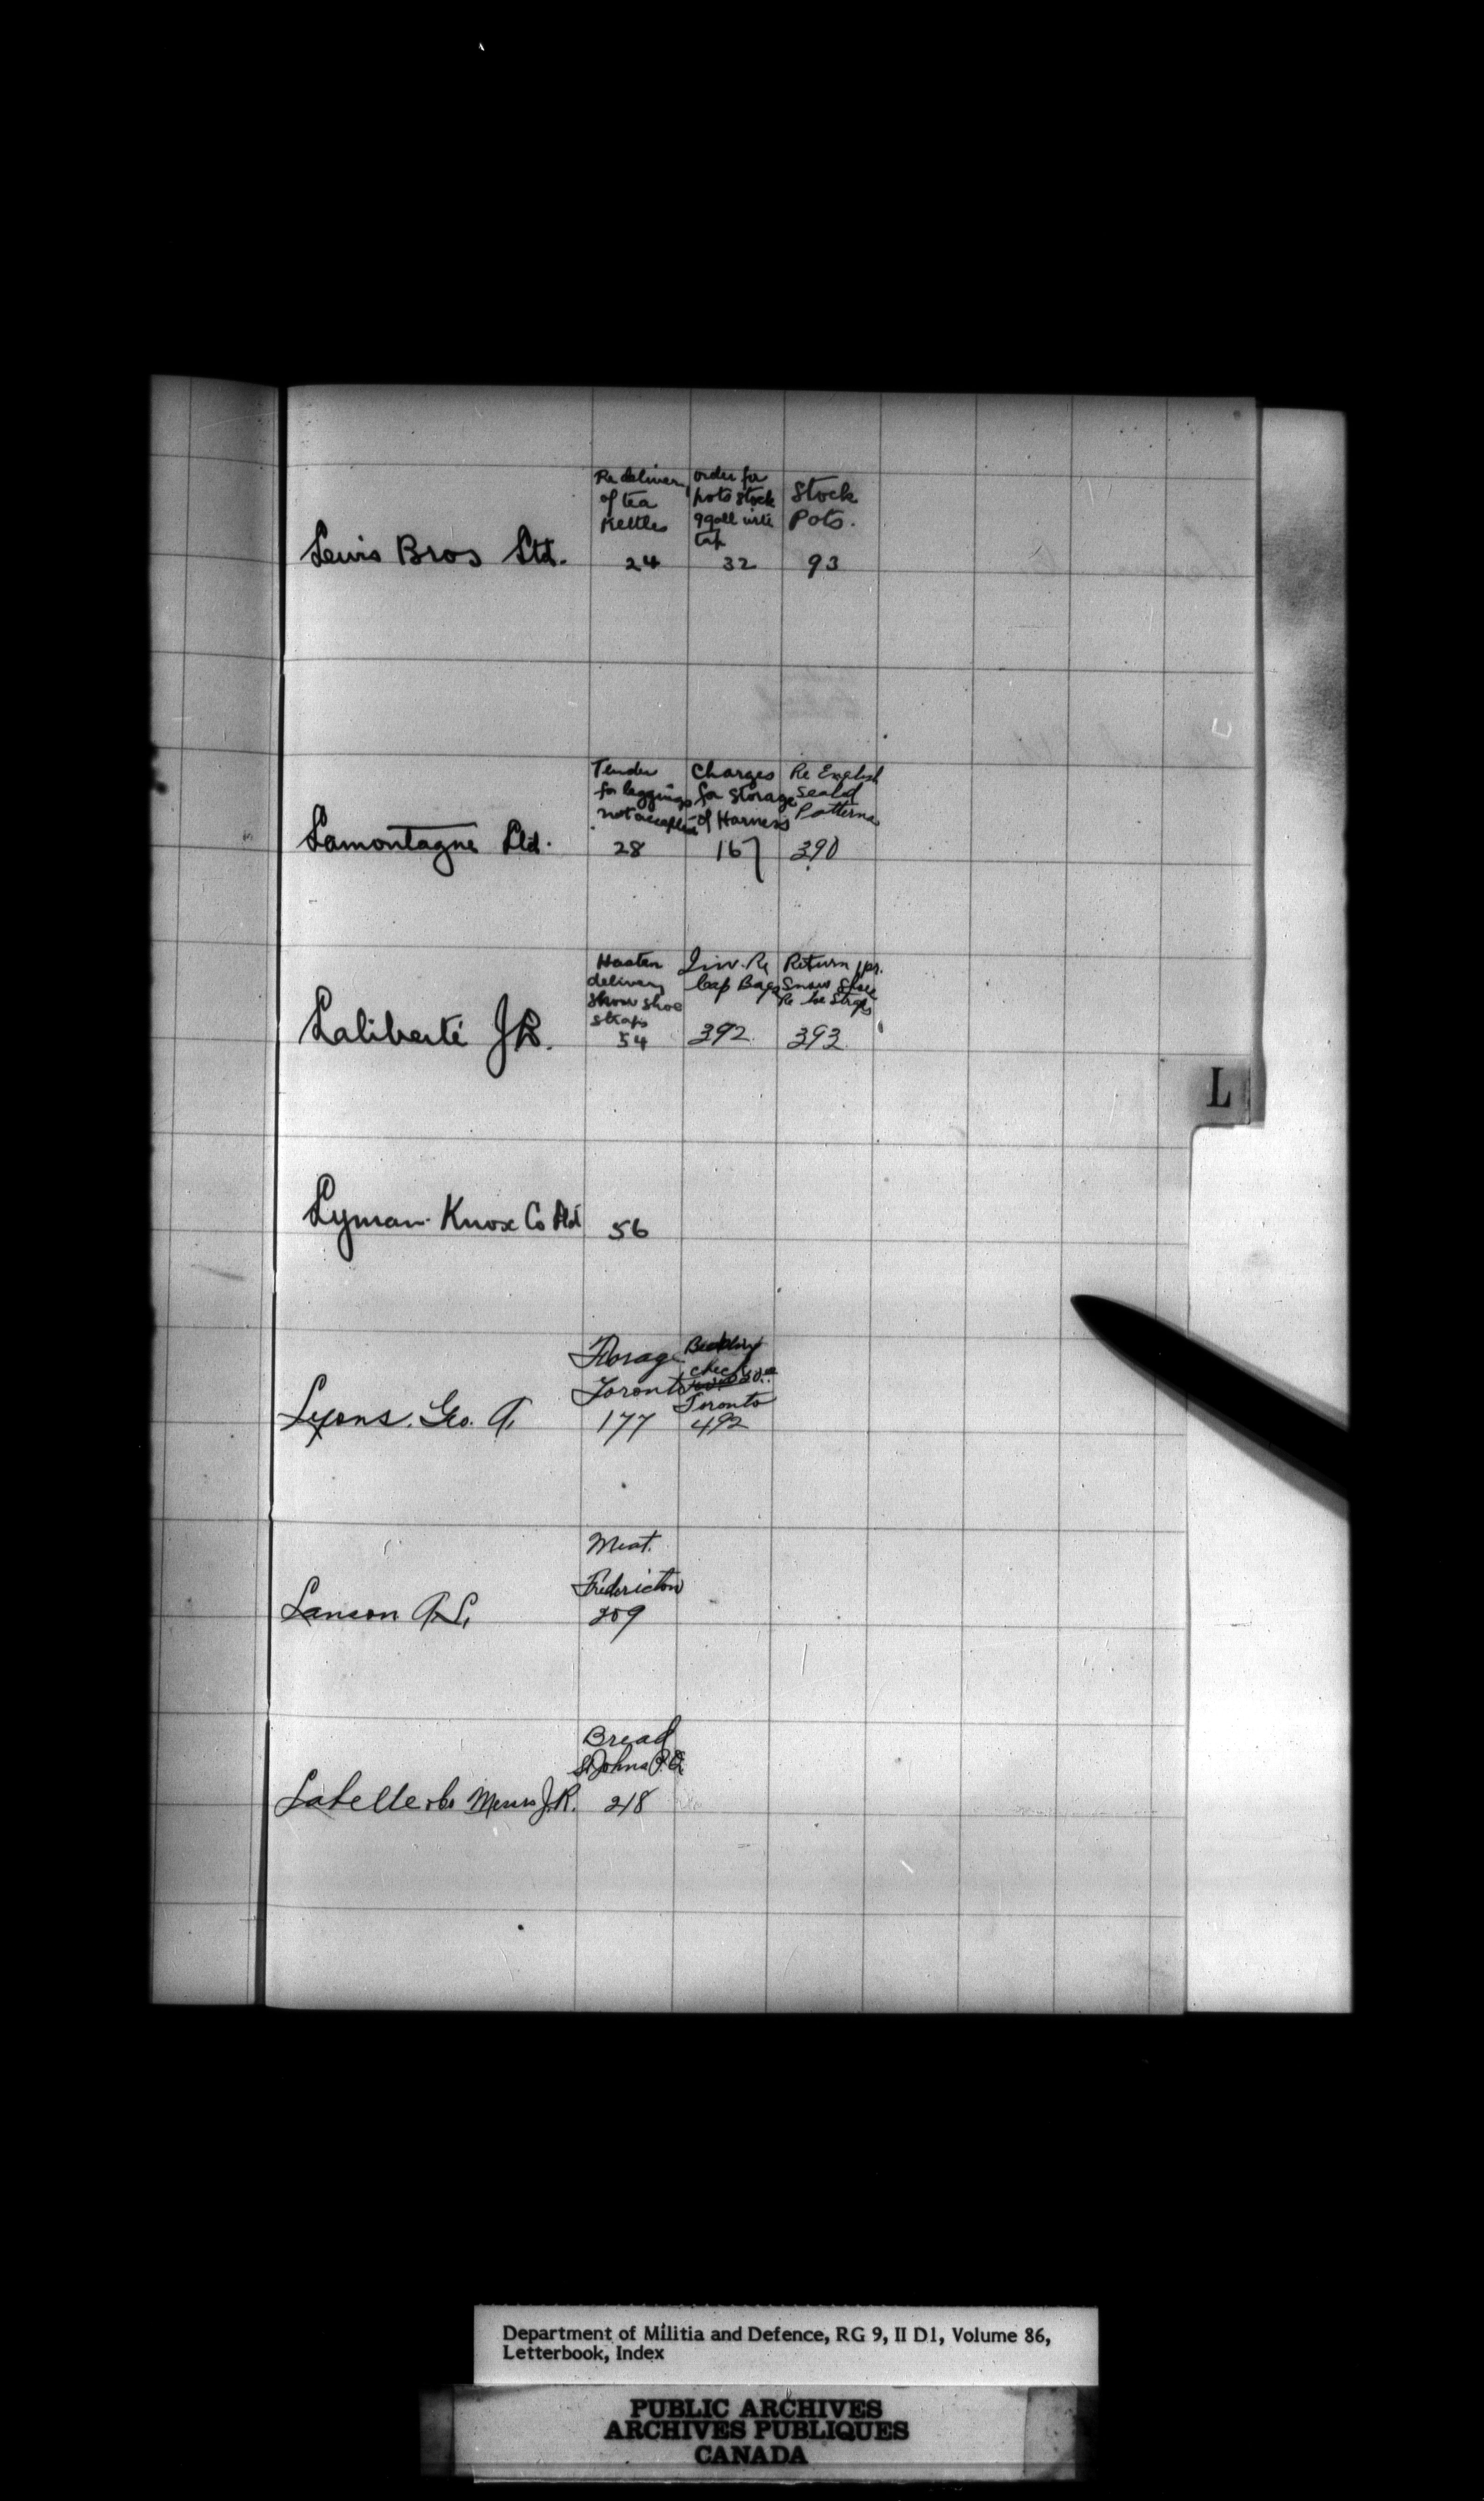 Re delivery
of tea
Kettles
24
order for
pots stock
9 gall with
tap
32
Stock
Pots.
93
Lewis Bros Ltd.
Tender
for leggings
not accepted
28
Charges
for Storage
of Harness
167
Re English
Sealed
Patterns
390
Lamontagne Ltd.
Hasten
delivery
Snow shoe
straps
54
Inv. Re
Cap Bags
392
Return 1 pr.
Snow Shoes
Re Straps
393
Laliberté J B.
L
Lyman Knox Co Ltd
56
Forage
Toronto
177
check
Toronto
492
Lyons. Geo. A.
Meat.
Fredericton
209
Lanson A.L.
Bread
St Johns P.Q.
218
Labelle & Co Messrs J.R.
Department of Militia and Defence, RG 9, II D1, Volume 86,
Letterbook, Index
PUBLIC ARCHIVES
ARCHIVES PUBLIQUES
CANADA